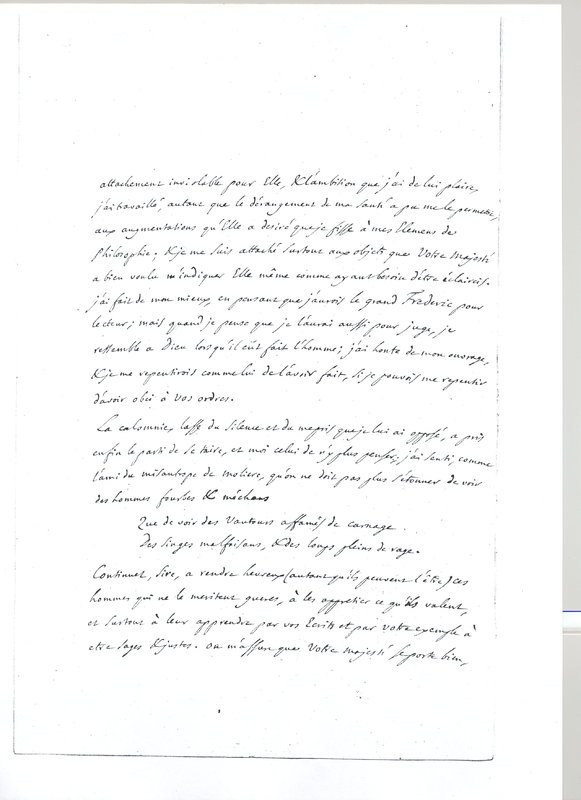 attachement inviolable pour Elle, & l'ambition que j'ai de lui plaire,
j'ai travaillé, autant que le dérangement de ma santé a pu me le permettre,
aux augmentations qu'Elle a desiré que je fisse à mes Elemens de
Philosophie. & je me suis attaché surtout aux objets que Votre Majesté
a bien voulu m'indiquer Elle même comme ayant besoin d'être éclaircis.
j'ai fait de mon mieux, en pensant que j'aurois le grand Frederic pour
lecteur; mais quand je pense que je l'aurai aussi pour juge, je
ressemble a Dieu lorsqu'il eût fait l'homme; j'ai honte de mon ouvrage,
& je me repentirois comme lui de l'avoir fait, si je pouvois me repentir
d'avoir obei à vos ordres.
La calomnie, lasse du silence et du mepris que je lui ai opposé, a pris
enfin le parti de se taire, et moi celui de n'y plus penser; j'ai senti, comme
l'ami du misantrope de moliere, qu'on ne doit pas plus s'étonner de voir
des hommes fourbes & méchans
Que de voir des Vautours affamés de carnage.
Des singes malfaisans, & des loups pleins de rage.
Continuez, sire, a rendre heureux (autant qu'ils peuvent l'être) ces
hommes qui ne le meritent gueres, à les apprétier ce qu'ils valent,
et surtout à leur apprendre par vos Ecrits et par votre exemple à
etre sages & justes. on m'assure que Votre majesté se porte bien,